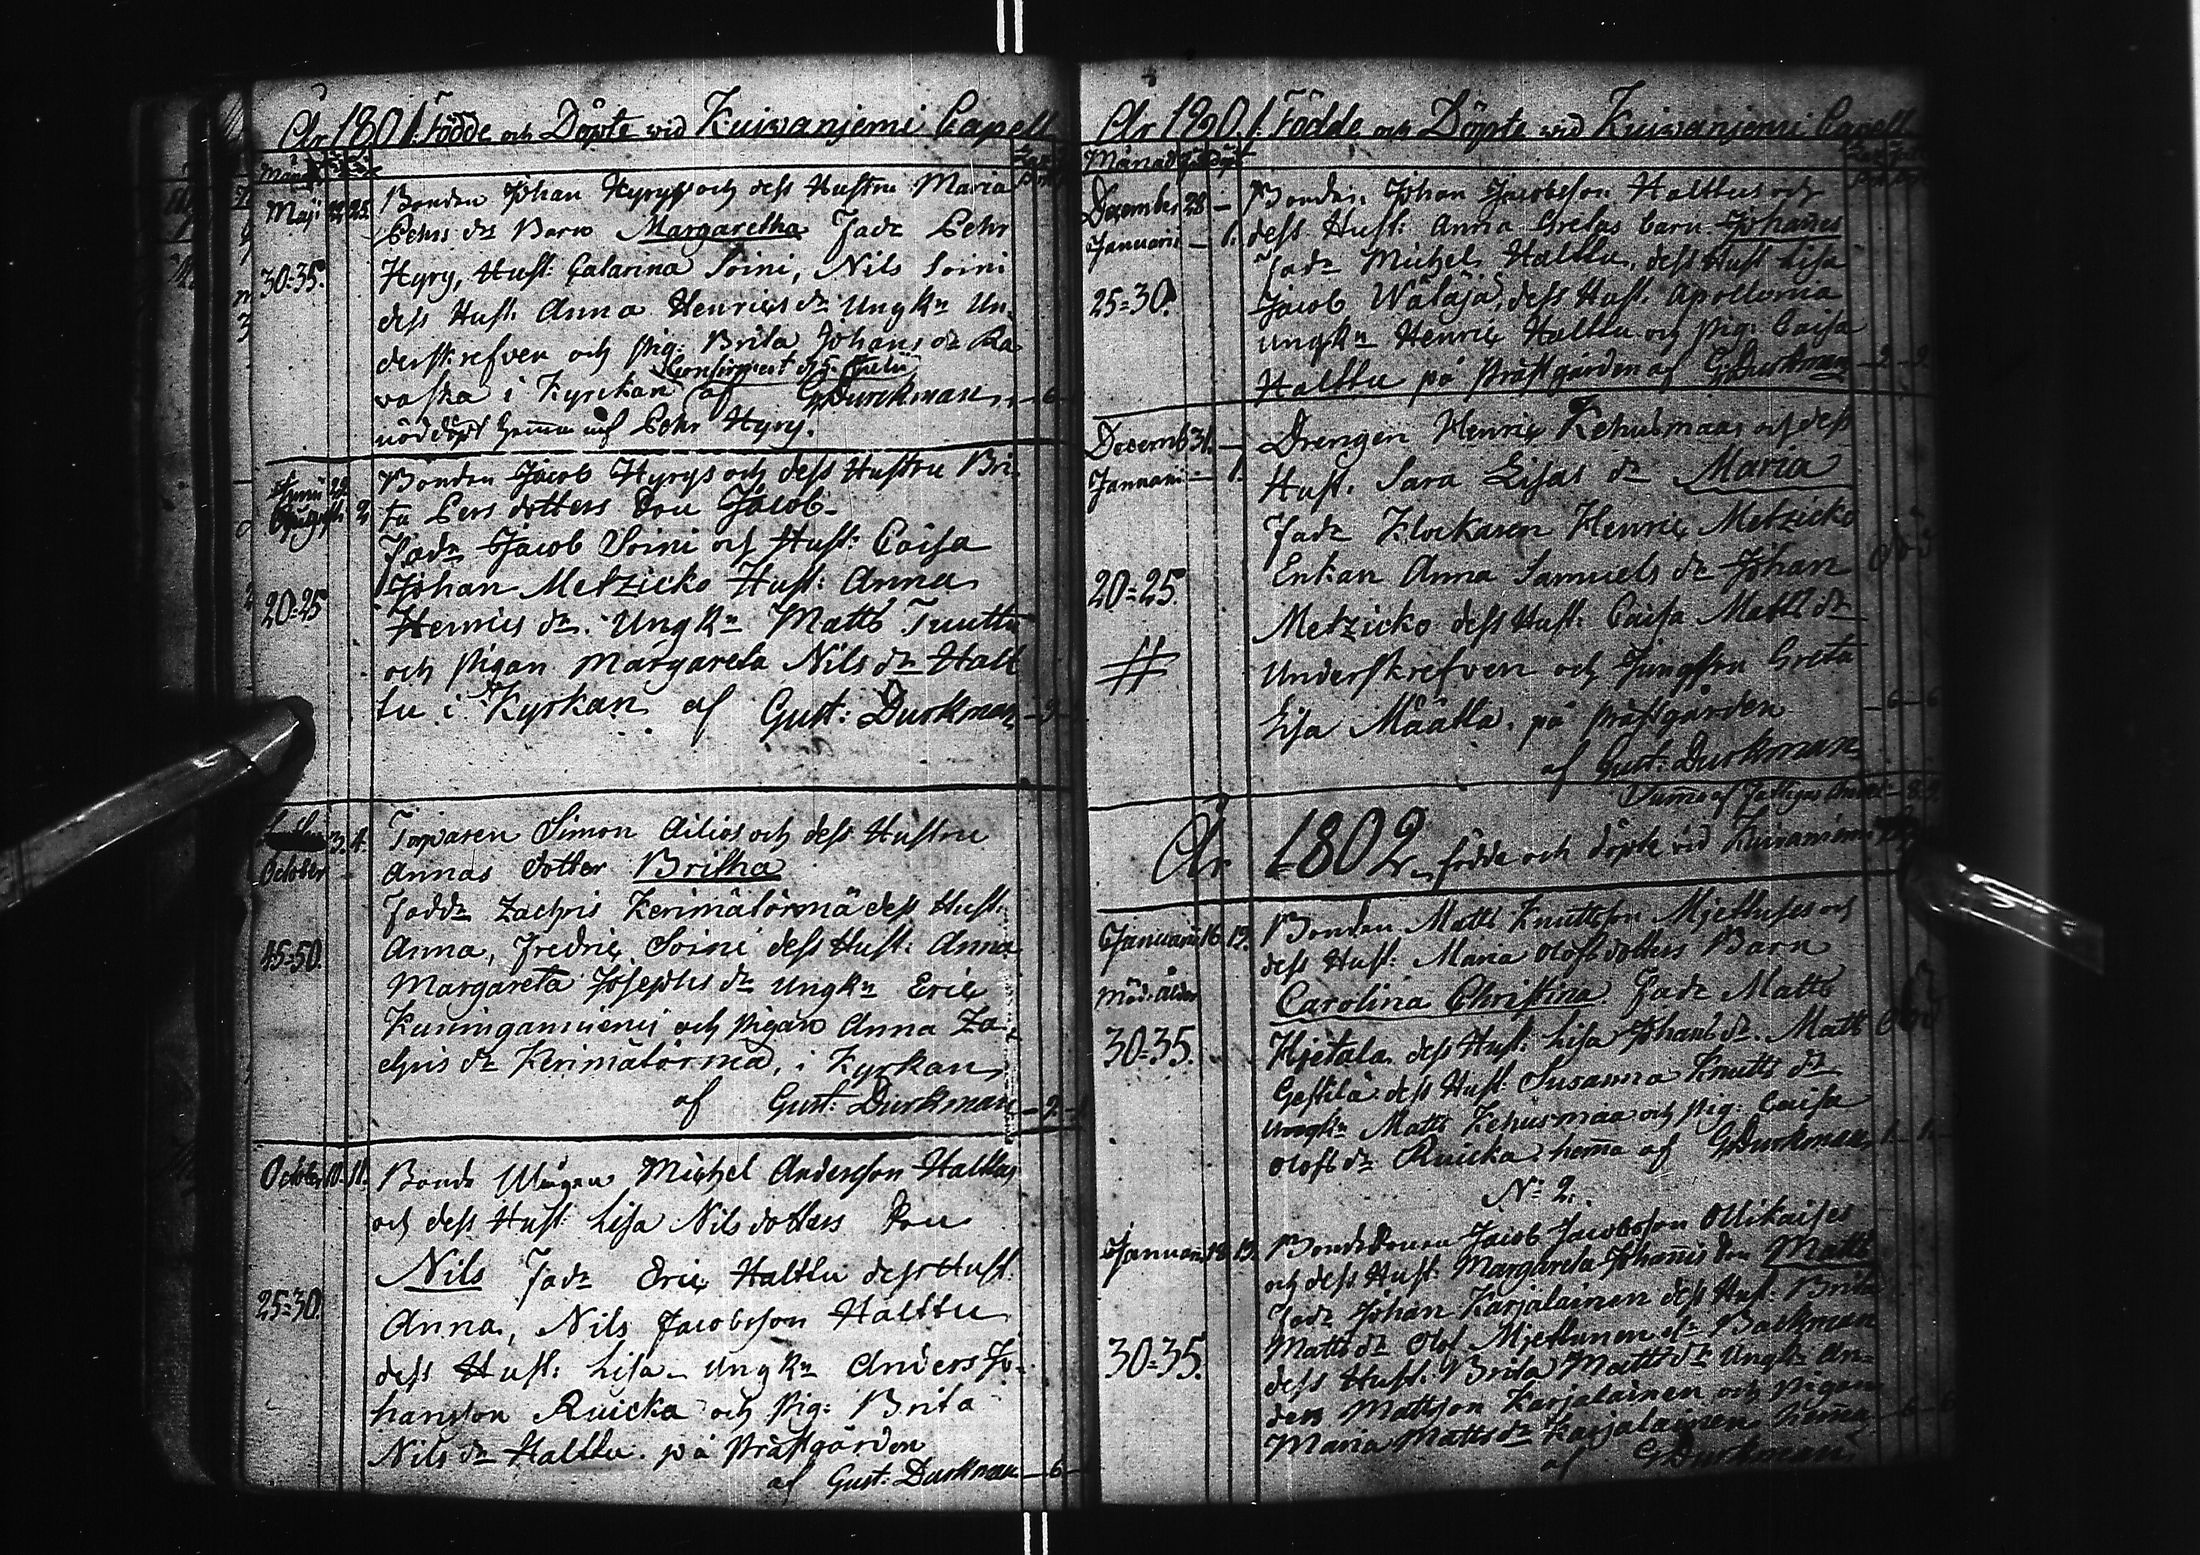 År 1801. Födde och Döpte vid Kuiwanjemi Capell
Maji 22 25. Bonden Johan Hyrys och dess Hustru Maria
Pehrs dr Barn Margaretha Fadr Pehr
30-35. Hyry, Hust: Catarina Soini, Nils Soini
dess Hust. Anna Henrics dr Ungkn Un-
derskrefven och Pig: Brita Johans dr
i Kyrckan af G Durckman - 6 -
nöd döpt hemma af Pehr Hyry.
Junii 22 Bonden Jacob Hyrys och dess Hustru Bri-
Augusti 2 ta Pers dotters Son Jacob
Fadr Jacob Soini och Hust: Caisa
Johan Metzicko Hust: Anna
20-25 Henrics dr. Ungkn Matts Tuuttu
och Pigan Margareta Nils dr Halt
tu i Kyrkan af Gust: Durkman - 2 -
3. 4. Torparen Simon Ailios och dess Hustru
October Annas dotter Britha
Faddr Zachris Kerimätörmä dess Hust.
45-50. Anna, Fredric Soini dess Hust: Anna
Margareta Josephs dr Ungkn Eric
och Pigan Anna Za-
chris dr Kerimätörmä, i Kyrkan
af Gust: Durkman - 2 -
October 10. 11. Bonde Michel Andersson Halttus
och dess Hust: Lisa Nils dotters Son
Nils Fadr Eric Halttu dess Hust.
25-30. Anna, Nils Jacobsson Halttu
dess Hust: Lisa Ungkn Anders Jo-
hansson Ruicka och Pig: Brita
Nils dr Halttu. på Prästgården
af Gust: Durkman - 6 -
År 1801. Födde och Döpte vid Kuiwanjemi Capell
Månad
December 28 - Bonden Johan Jacobsson Halttus och
Januarii - 1. dess Hust: Anna Gretas barn Johannes
Fadr Michel Halttu, dess Hust Lisa
25-30. Jacob Wäläjä, dess Hust. Apollonia
Ungkn Henric Halttu och Pig: Caisa
Halttu på Prästgården af G Durkman - 2 - 2
Decemb 31. - Drengen Henric Kehusmaas och dess
Januarii - 1. Hust. Sara Lisas dr Maria
Fadr Klockaren Henric Metzicko
Enkan Anna Samuels dr Johan
20-25. Metzicko dess Hust: Caisa Matts dr
# Underskrefven och Jungfru Greta
Lisa Määtta. på Prästgården - 6 - 6
af Gust: Durkman
År 1802. födde och döpte vid
Januarii 16. 19. Bonden Matts Knuttsson Mjettuses och
dess Hust: Maria Olofs dotters Barn
Mödr Ålder Carolina Christina Fadr Matts
30-35. Hjetala dess Hust: Lisa Johans dr. Matts
Gestilä dess Hust: Susanna Knutts dr
Ungkn Matts Kehusmaa och Pig: Caisa
Olofs dr Ruicka hema af G Durkman - 1 - 1 -
No 2.
Januari 18 19. Bondesonen Jacob Jacobsson Ollikaises
och dess Hust: Margareta Johans Son Matts
Fadr Johan Karjalainen dess Hust: Brita
Matts dr Olof Mjettunen
30-35. dess Hust: Brita Matts dr Ungkn An-
ders Mattsson Karjalainen och Pigan
Maria Matts dr Karjalainen hema - 6 - 6
af G Durkman